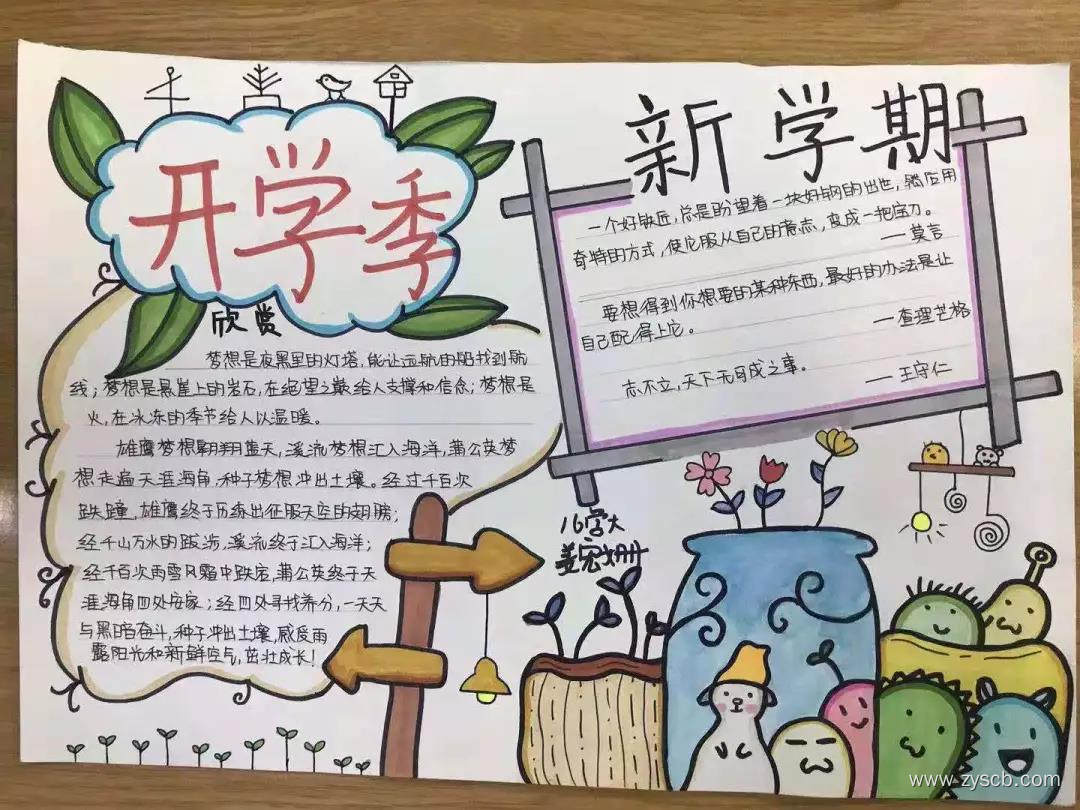 开学季
欣赏
梦想是夜黑里的灯塔,能让远航的船找到航
线;梦想是悬崖上的岩石,在绝望之巅给人支撑和信念;梦想是
火,在冰冻的季节给人以温暖。
雄鹰梦想翱翔蓝天,溪流梦想汇入海洋,蒲公英梦
想走遍天涯海角,种子梦想冲出土壤。经过千百次
跌撞,雄鹰终于历练出征服天空的翅膀;
经千山万水的跋涉,溪流终于汇入海洋;
经千百次雨雪风霜中跌宕,蒲公英终于天
涯海角四处安家;经四处寻找养分,一天天
与黑暗奋斗,种子冲出土壤,感受雨
露阳光和新鲜空气,茁壮成长!
新学期
一个好铁匠,总是盼望着一块好钢的出世,锻应用
奇特的方式,使它服从自己的意志,变成一把宝刀。
——莫言
要想得到你想要的某种东西,最好的办法是让
自己配得上它。
——查理芒格
志不立,天下无可成之事。
——王守仁
www.zyscb.com